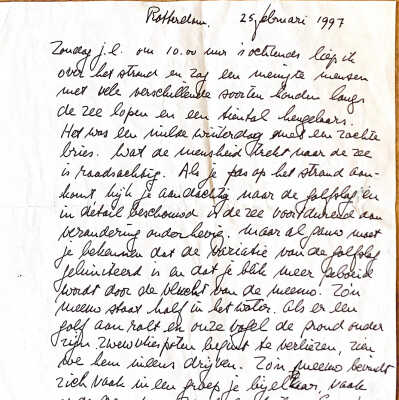 Rotterdam. 25 februari 1997
Zondag j.l. om 10.00 uur 's ochtends liep ik
over het strand en zag een menigte mensen
met vele verschillende soorten honden langs
de zee lopen en een tiental hengelaars.
Het was een milde winterdag met een zachte
bries. Wat de mensheid trekt naar de zee
is raadselachtig. Als je pas op het strand aan-
komt, kijk je aandachtig naar de golfslag en
in detail beschouwd is de zee voortdurend aan
verandering onderhevig. Maar al gauw moet
je bekennen dat de variatie van de golfslag
gelimiteerd is en dat je blik meer geboeid
wordt door de vlucht van de meeuw. Zo'n
meeuw staat half in het water. Als er een
golf aan rolt en onze vogel de grond onder
zijn zwemvliespoten begint te verliezen, zien
we hem ineens drijven. Zo'n meeuw bevindt
zich vaak in een groep je bij elkaar, vaak